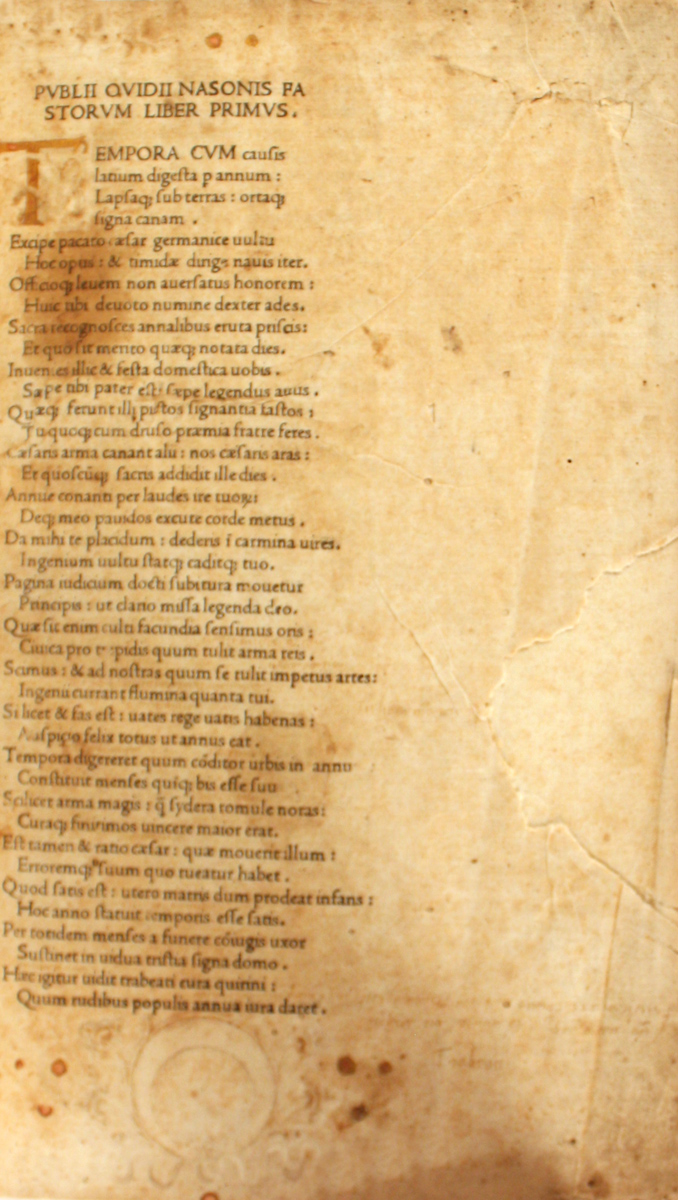 PVBLII OVIDII NASONIS FA
STORVM LIBER PRIMVS.
TEMPORA CVM causis
latium digesta p annum :
Lapsaq; sub terras : ortaq;
signa canam .
Excipe pacato cæsar germanice uultu
Hoc opus : & timidæ dirige nauis iter.
Officioq; leuem non auersatus honorem :
Huic tibi deuoto numine dexter ades.
Sacra recognosces annalibus eruta priscis:
Et quo sit merito quæq; notata dies.
Inuenies illic & festa domestica uobis .
Sæpe tibi pater est: sæpe legendus auus .
Quæq; ferunt illi pictos signantia fastos :
Tu quoq; cum druso præmia fratre feres .
Cæsaris arma canant alii : nos cæsaris aras :
Et quoscūq; sacris addidit ille dies .
Annue conanti per laudes ire tuoꝝ:
Deq; meo pauidos excute corde metus .
Da mihi te placidum : dederis ī carmina uires.
Ingenium uultu statq; caditq; tuo.
Pagina iudicium docti subitura mouetur
Principis : ut clario missa legenda deo.
Quæ sit enim culti facundia sensimus oris :
Ciuica pro trepidis quum tulit arma reis .
Scimus : & ad nostras quum se tulit impetus artes:
Ingenii currant flumina quanta tui.
Si licet & fas est : uates rege uatis habenas :
Auspicio felix totus ut annus eat .
Tempora digereret quum cōditor urbis in annu
Constituit menses quīq; bis esse suu
Scilicet arma magis : q̄ sydera romule noras:
Curaq; finitimos uincere maior erat.
Est tamen & ratio cæsar : quæ mouerit illum :
Erroremq; suum quo tueatur habet .
Quod satis est : utero matris dum prodeat infans :
Hoc anno statuit temporis esse satis.
Per totidem menses a funere cōiugis uxor
Sustinet in uidua tristia signa domo .
Hæc igitur uidit trabeati cura quirini :
Quum rudibus populis annua iura daret .